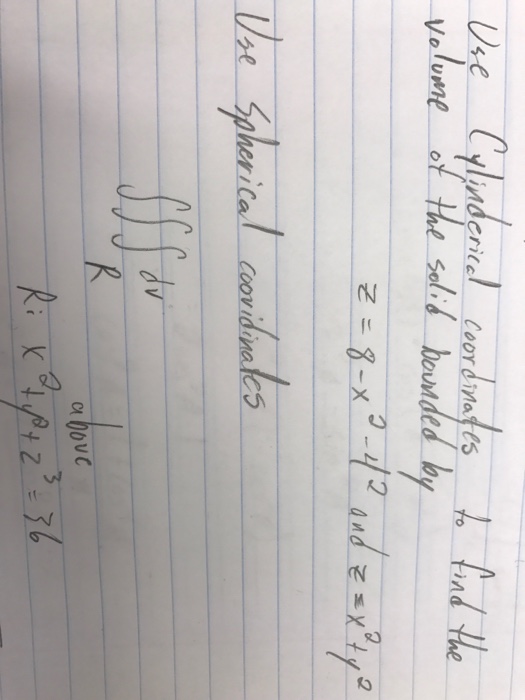 Use Cylinderical coordinates to find the
volume of the solid bounded by
z = 8 - x² - 4² and z = x² + y²
Use Spherical cooridinates
∫∫∫ dv
R
above
R: x² + y² + z³ = 36